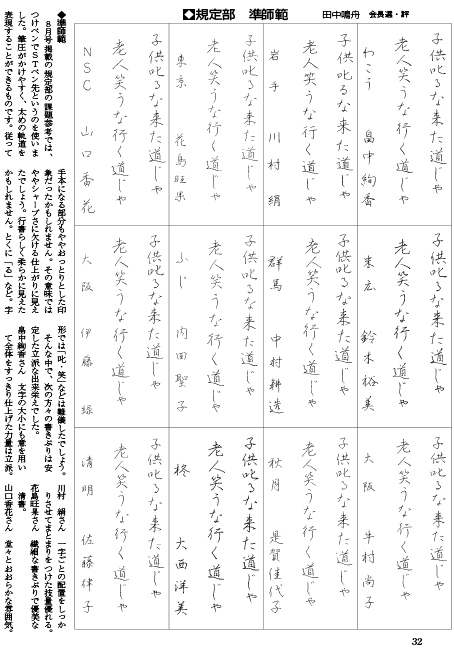 ◆規定部　準師範
田中鳴舟　会長選・評
子供叱るな来た道じゃ
老人笑うな行く道じゃ
わこう　畠中絢香
子供叱るな来た道じゃ
老人笑うな行く道じゃ
岩手　川村絹
子供叱るな来た道じゃ
老人笑うな行く道じゃ
東京　花島旺果
子供叱るな来た道じゃ
老人笑うな行く道じゃ
NSC　山口香花
子供叱るな来た道じゃ
老人笑うな行く道じゃ
末広　鈴木裕美
子供叱るな来た道じゃ
老人笑うな行く道じゃ
群馬　中村耕造
子供叱るな来た道じゃ
老人笑うな行く道じゃ
ふじ　内田聖子
子供叱るな来た道じゃ
老人笑うな行く道じゃ
大阪　伊藤緑
子供叱るな来た道じゃ
老人笑うな行く道じゃ
大阪　牛村尚子
子供叱るな来た道じゃ
老人笑うな行く道じゃ
秋月　是賀佳代子
子供叱るな来た道じゃ
老人笑うな行く道じゃ
柊　大西洋美
子供叱るな来た道じゃ
老人笑うな行く道じゃ
清明　佐藤律子
◆準師範
８月号掲載の規定部の課題参考では、
つけペンでＳＴペン先というのを使いま
した。筆圧がかけやすく、太めの軌道を
表現することができるものです。従って
手本になる部分もややおっとりとした印
象だったかもしれません。その意味では
ややシャープさに欠ける仕上がりに見え
たでしょう。行書らしく柔らかに見えた
かもしれません。とくに「る」など。字
形では「叱・笑」などは難儀したでしょう。
そんな中で、次の方々の書きぶりは安
定した立派な出来栄えでした。
畠中絢香さん　文字の大小にも意を用い
て全体をすっきり仕上げた力量は立派。
川村　絹さん　一字ごとの配置をしっか
りさせてまとまりをつけた技量優れる。
花島旺果さん　繊細な書きぶりで優美な
清書。
山口香花さん　堂々とおおらかな雰囲気。
32